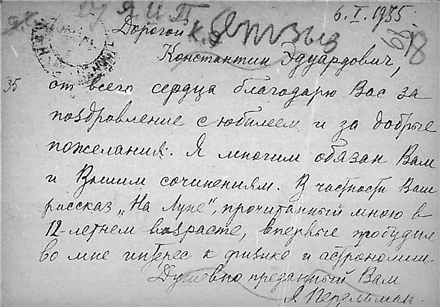 6. I. 1935.
Дорогой
Константин Эдуардович,
от всего сердца благодарю Вас за
поздравление с юбилеем и за добрые
пожелания. Я многим обязан Вам
и Вашим сочинениям. В частности Ваш
рассказ „На Луне", прочитанный мною в
12-летнем возрасте, впервые пробудил
во мне интерес к физике и астрономии.
Душевно преданный Вам
Я. Перельман.